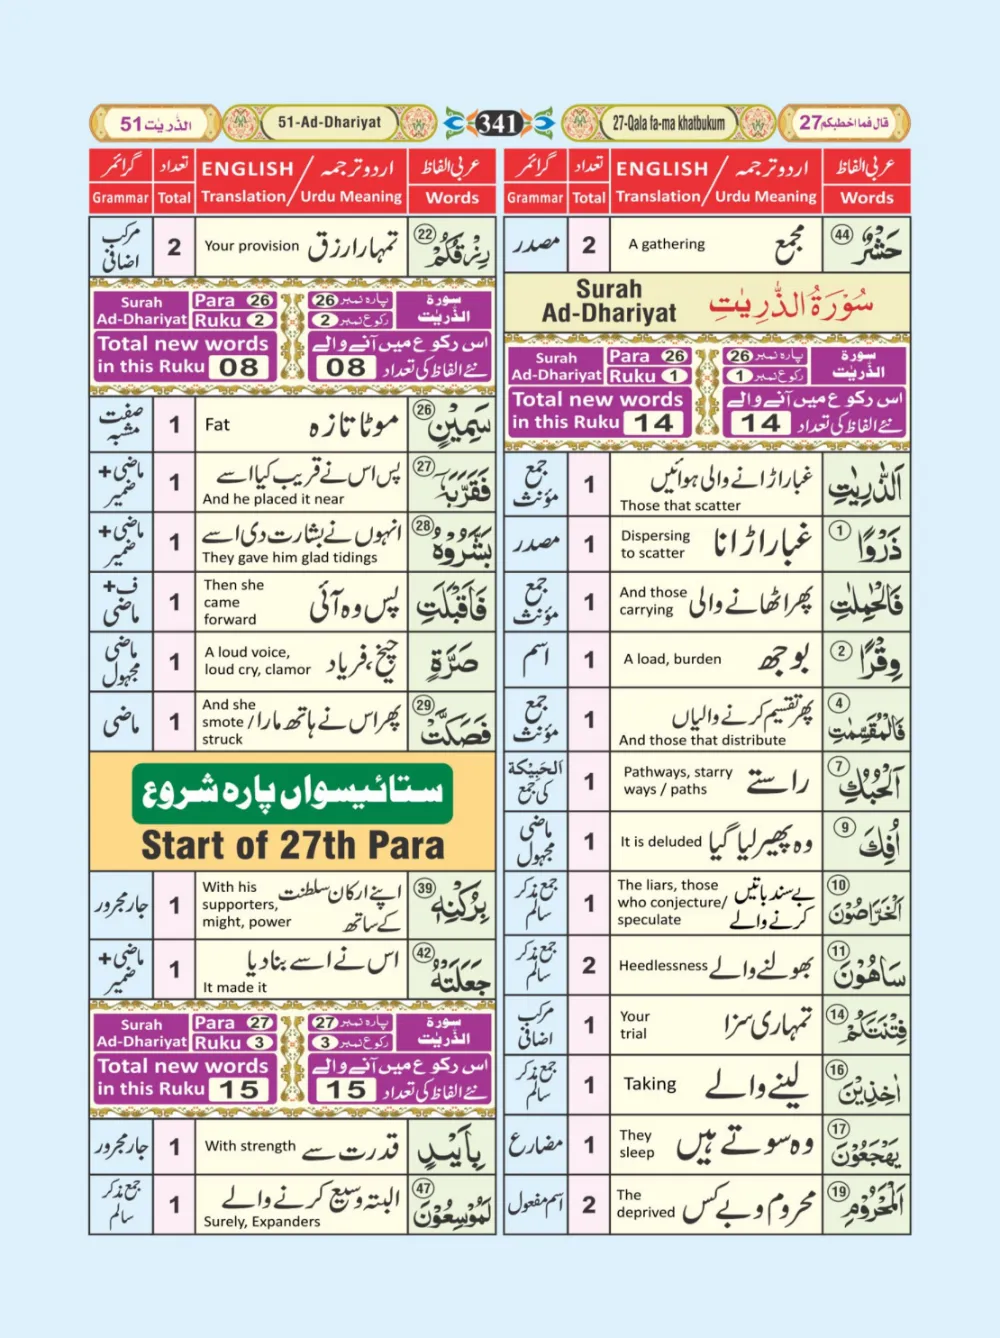 الذّٰریٰت 51
51-Ad-Dhariyat
341
27-Qala fa-ma khatbukum
قال فما خطبکم 27
عربی الفاظ اردو ترجمہ / ENGLISH تعداد گرائمر
Words Urdu Meaning / Translation Total Grammar
حَشْرٌ 44 مجمع A gathering 2 مصدر
سُوْرَةُ الذّٰرِيٰتِ
Surah
Ad-Dhariyat
Surah Ad-Dhariyat Para 26 Ruku 1
سورۃ الذّٰریٰت پارہ نمبر 26 رکوع نمبر 1
Total new words in this Ruku 14
اس رکوع میں آنے والے نئے الفاظ کی تعداد 14
اَلذّٰرِيٰتِ غبار اڑانے والی ہوائیں Those that scatter 1 جمع مؤنث
ذَرْوًا 1 غبار اڑانا Dispersing to scatter 1 مصدر
فَالْحٰمِلٰتِ پھر اٹھانے والی And those carrying 1 جمع مؤنث
وِقْرًا 2 بوجھ A load, burden 1 اسم
فَالْمُقَسِّمٰتِ 4 پھر تقسیم کرنے والیاں And those that distribute 1 جمع مؤنث
اَلْحُبُكِ 7 راستے Pathways, starry ways / paths 1 الحَبِیْکَة کی جمع
اُفِكَ 9 وہ پھیر لیا گیا It is deluded 1 ماضی مجہول
اَلْخَرّٰصُوْنَ 10 بے سند باتیں کرنے والے The liars, those who conjecture/ speculate 1 جمع مذکر سالم
سَاهُوْنَ 11 بھولنے والے Heedlessness 2 جمع مذکر سالم
فِتْنَتَكُمْ 14 تمہاری سزا Your trial 1 مرکب اضافی
اٰخِذِيْنَ 16 لینے والے Taking 1 جمع مذکر سالم
يَهْجَعُوْنَ 17 وہ سوتے ہیں They sleep 1 مضارع
اَلْمَحْرُوْمِ 19 محروم و بے کس The deprived 2 اسم مفعول
عربی الفاظ اردو ترجمہ / ENGLISH تعداد گرائمر
Words Urdu Meaning / Translation Total Grammar
رِزْقُكُمْ 22 تمہارا رزق Your provision 2 مرکب اضافی
Surah Ad-Dhariyat Para 26 Ruku 2
سورۃ الذّٰریٰت پارہ نمبر 26 رکوع نمبر 2
Total new words in this Ruku 08
اس رکوع میں آنے والے نئے الفاظ کی تعداد 08
سَمِيْنٍ 26 موٹا تازہ Fat 1 صفت مشبہ
فَقَرَّبَهٗ 27 پس اس نے قریب کیا اسے And he placed it near 1 ماضی+ ضمیر
بَشَّرُوْهُ 28 انہوں نے بشارت دی اسے They gave him glad tidings 1 ماضی+ ضمیر
فَاَقْبَلَتِ پس وہ آئی Then she came forward 1 ف+ ماضی
صَرَّةٍ چیخ، فریاد A loud voice, loud cry, clamor 1 ماضی مجہول
فَصَكَّتْ 29 پھر اس نے ہاتھ مارا And she smote / struck 1 ماضی
ستائیسواں پارہ شروع
Start of 27th Para
بِرُكْنِهٖ 39 اپنے ارکان سلطنت کے ساتھ With his supporters, might, power 1 جار مجرور
جَعَلَتْهُ 42 اس نے اسے بنا دیا It made it 1 ماضی+ ضمیر
Surah Ad-Dhariyat Para 27 Ruku 3
سورۃ الذّٰریٰت پارہ نمبر 27 رکوع نمبر 3
Total new words in this Ruku 15
اس رکوع میں آنے والے نئے الفاظ کی تعداد 15
بِاَيْىدٍ قدرت سے With strength 1 جار مجرور
لَمُوْسِعُوْنَ 47 البتہ وسیع کرنے والے Surely, Expanders 1 جمع مذکر سالم